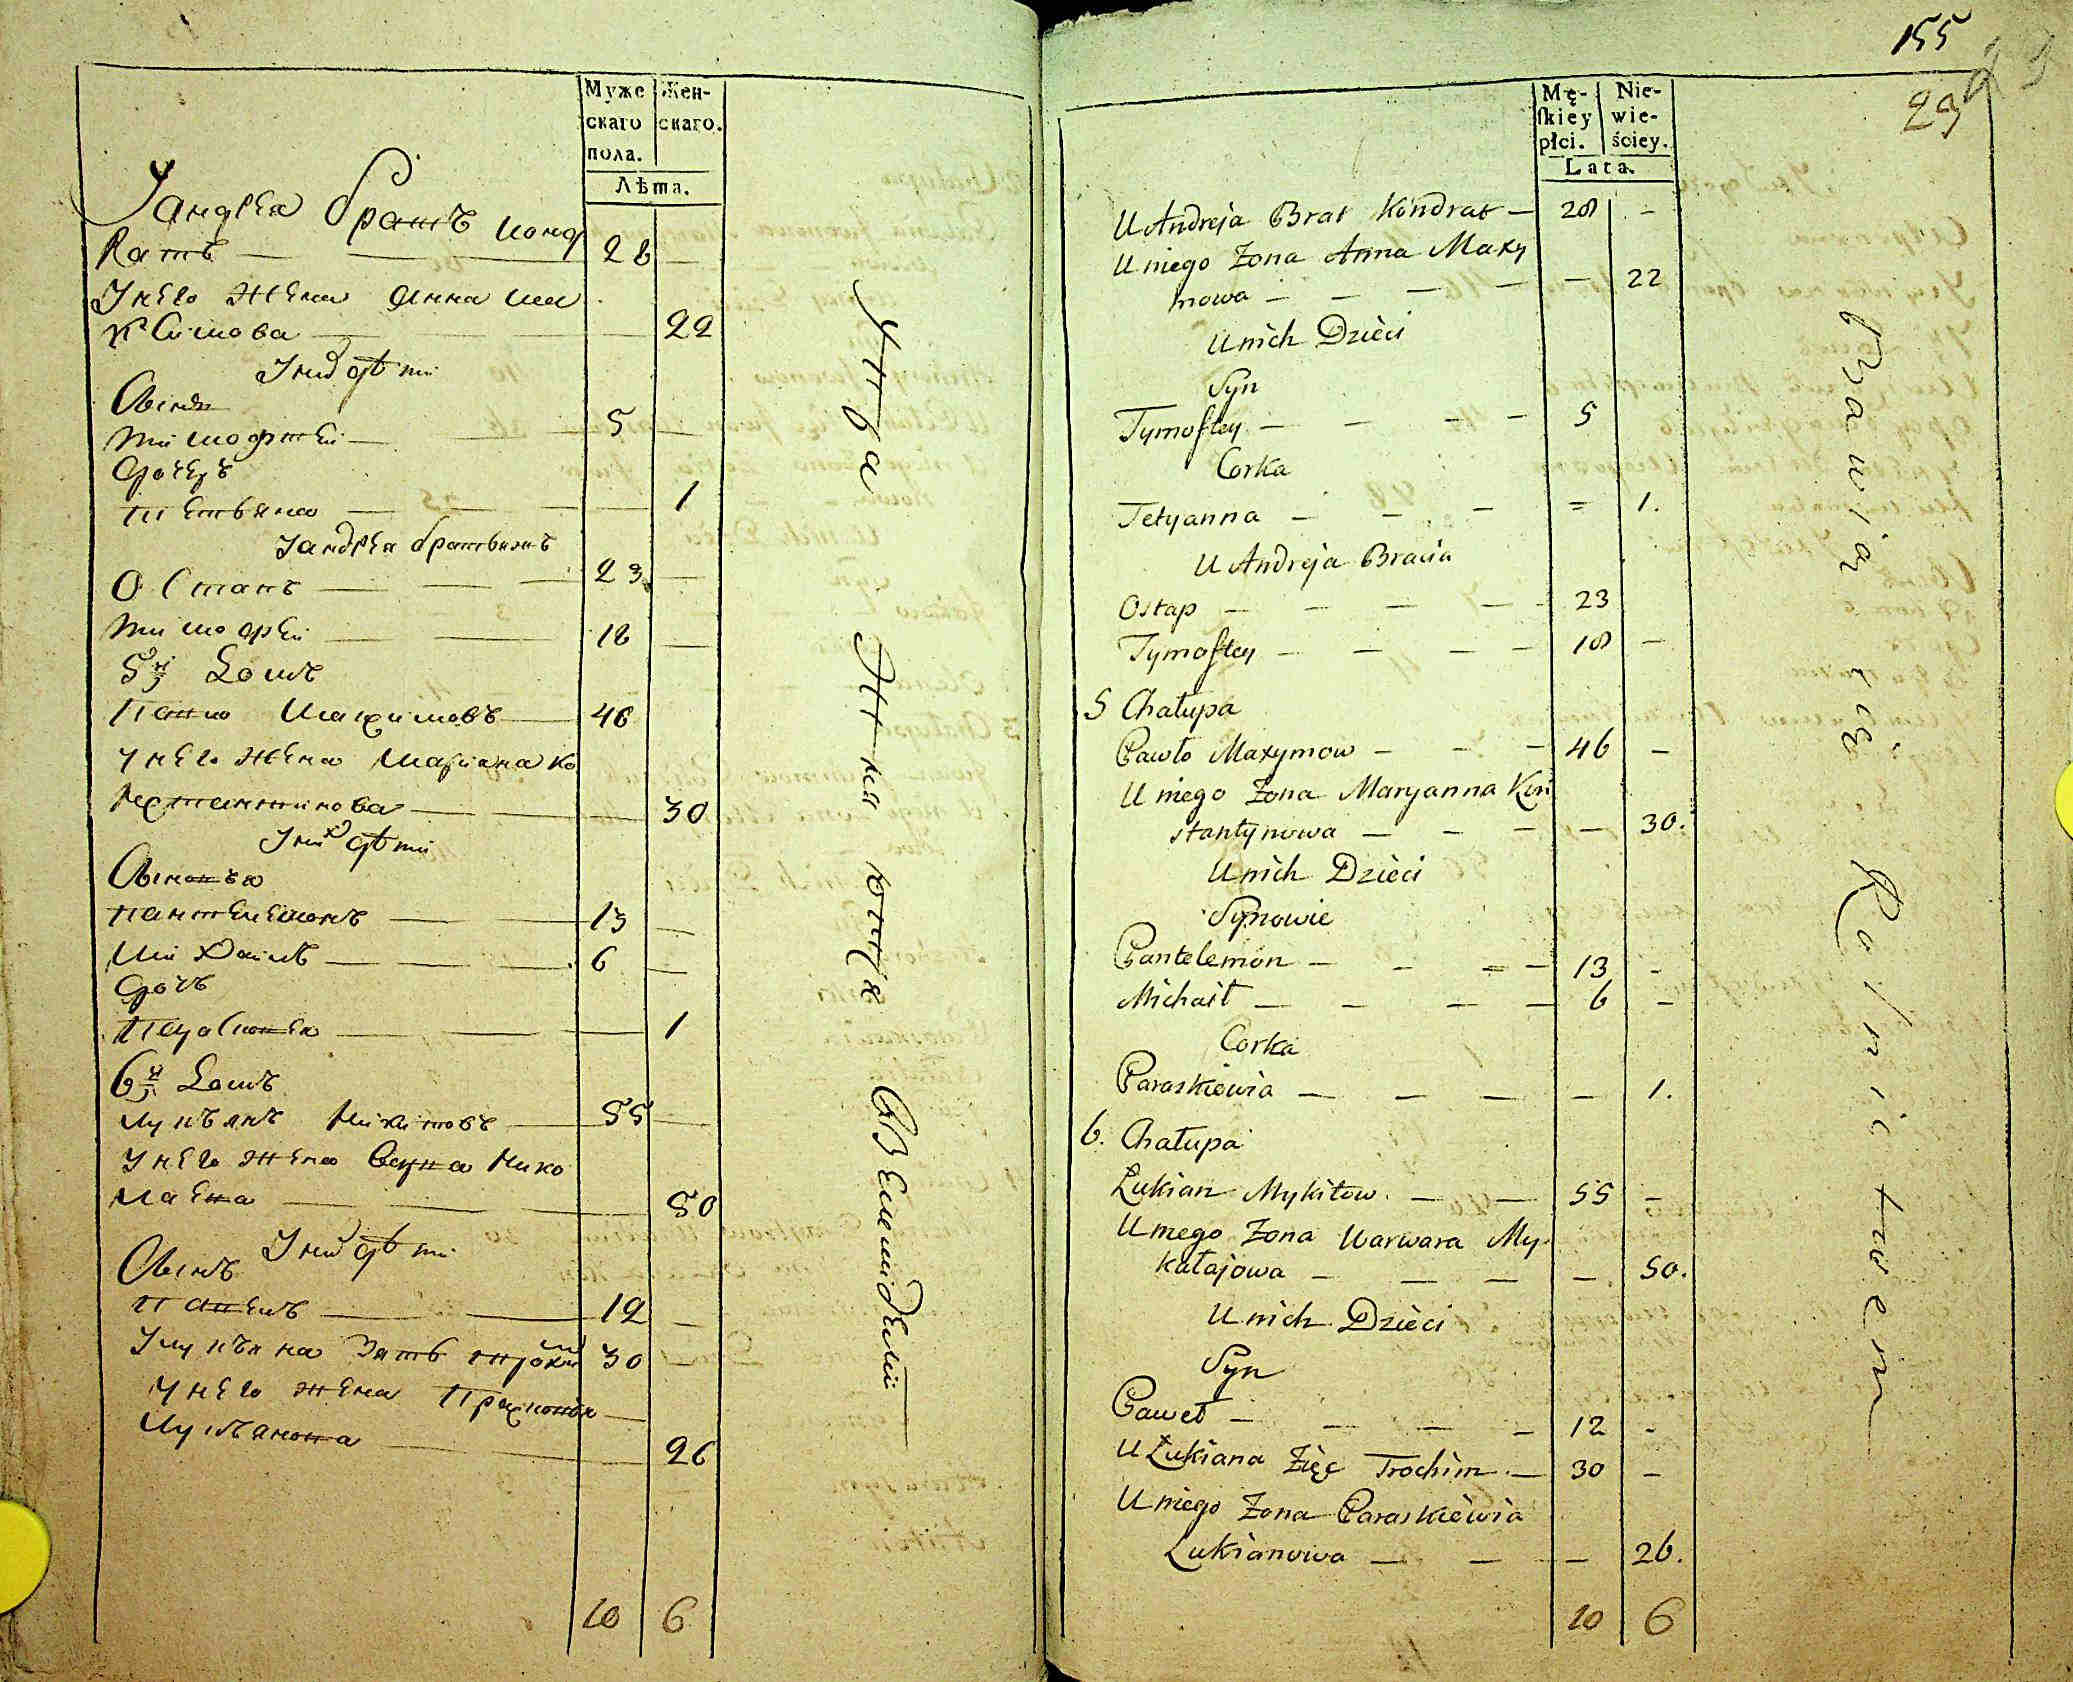 Муже
скаго
пола.
Жен-
скаго.
Лѣта.
У андрея братъ конд
ратъ — 28 —
У него жена анна ма
ксимова — 22
У них дѣти
Сынъ
тимофтей — 5 —
дочерь
тетьяна — 1
У андрея братьевъ
Остапъ — 23 —
тимофей — 18 —
5й домъ
Павло Максимовъ — 46
У него жена Марiана ко
нстантинова — 30
У них дѣти
Сыновья
пантелемонъ — 13 —
Михаилъ — 6 —
дочь
Парасковея — 1
6й домъ
лукьянъ Никитовъ — 55 —
У него жена Варвара Нико
лаева — 50
У них дѣти
Сынъ
павелъ — 12 —
У лукъяна зять трохим 30
У него жена Прасковья —
лукьянова — 26
10 6
155
29
Mę-
ſkiey
płci.
Nie-
wie-
ściey.
Lata.
U Andreja Brat Kondrat — 28 -
U niego Zona Anna Maxy
mowa — — — — 22
U nich Dzieci
Syn
Tymoftey — — — 5
Corka
Tetyanna — — — = 1.
U Andreja Bracia
Ostap — — — — 23
Tymoftey — — — — 18 —
5 Chałupa
Pawło Maxymow — — — 46 —
U niego Zona Maryanna Kon
stantynowa — — — — 30.
U nich Dzieci
Synowie
Pantelemon — — — — 13 -
Michaił — — — — 6 —
Corka
Paraskiewia — — — — 1.
6. Chałupa
Łukian Mykitow — — 55 —
U niego Zona Warwara My-
kałajowa — — — — 50.
U nich Dzieci
Syn
Paweł — — — — 12 -
U Łukiana Zięć Trochim — 30 —
U niego Zona Paraskiewia
Łukianowa — — — 26.
10 6
Bawią się Rolnictwem